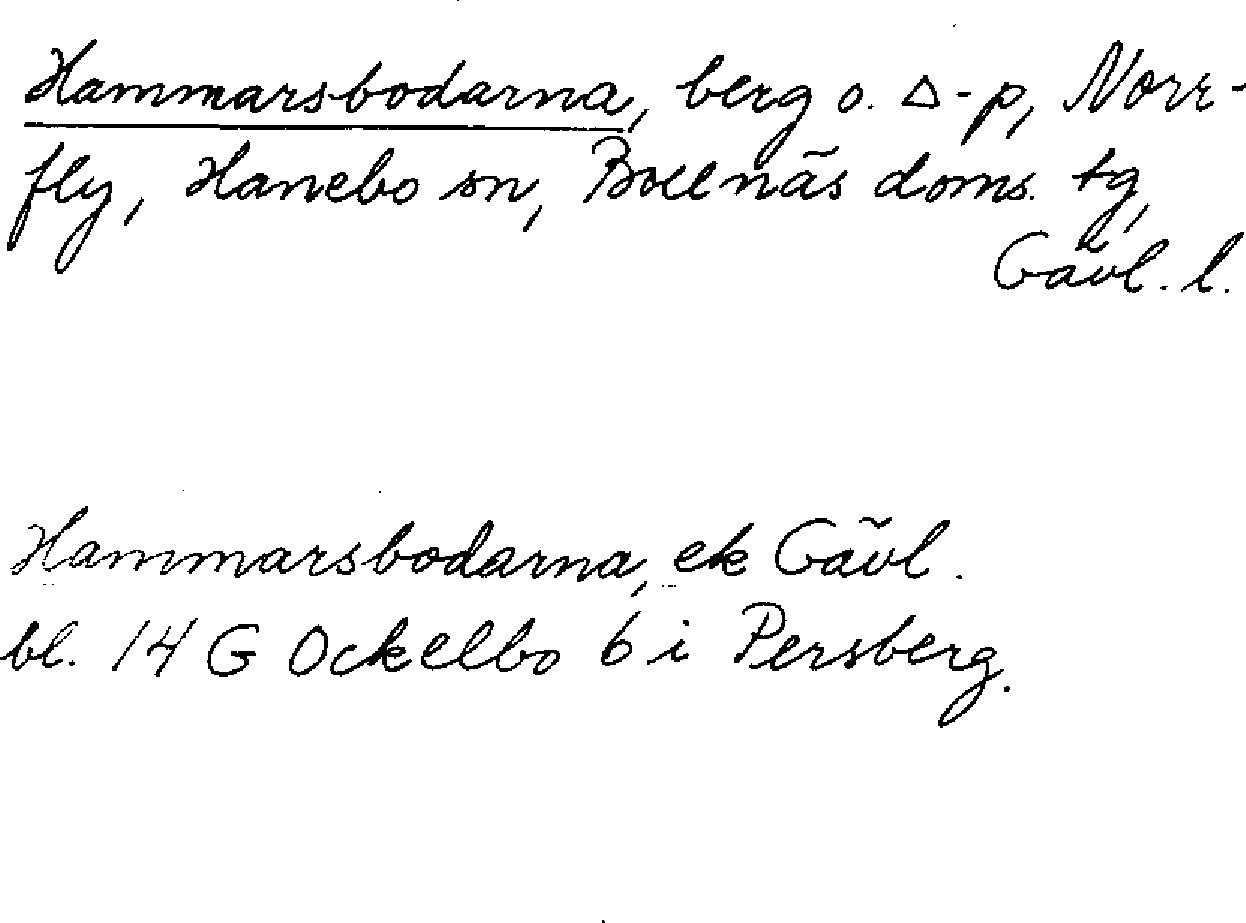 Hammarsbodarna, berg o. Δ-p, Norr-
fly, Hanebo sn, Bollnäs doms. tg,
Gävl. l.
Hammarsbodarna, ek Gävl.
bl. 14 G Ockelbo 6 i Persberg.